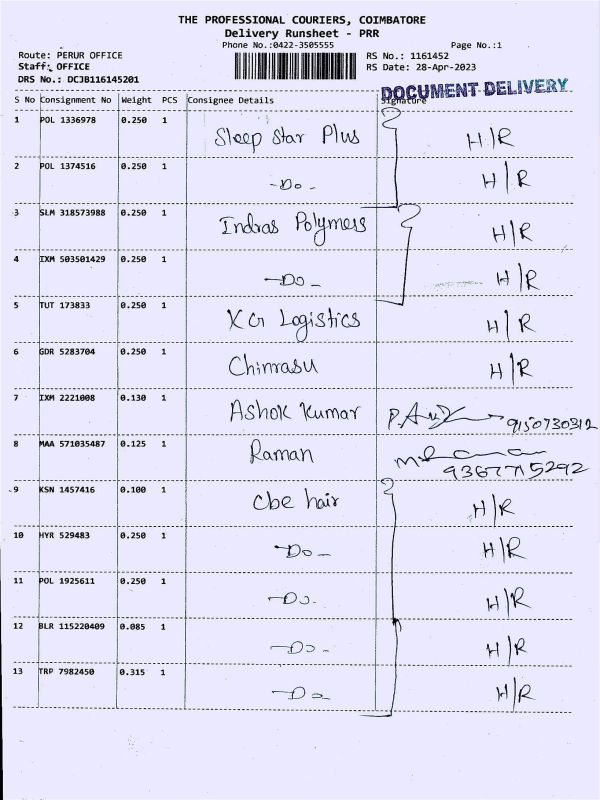 THE PROFESSIONAL COURIERS, COIMBATORE
Delivery Runsheet - PRR
Phone No.:0422-3505555 Page No.:1
Route: PERUR OFFICE RS No.: 1161452
Staff: OFFICE RS Date: 28-Apr-2023
DRS No.: DCJB116145201
DOCUMENT DELIVERY
S No Consignment No Weight PCS Consignee Details Signature
1 POL 1336978 0.250 1 Sleep Star Plus H/R
2 POL 1374516 0.250 1 -Do- H/R
3 SLM 318573988 0.250 1 Indras Polymers H/R
4 IXM 503501429 0.250 1 -Do- H/R
5 TUT 173833 0.250 1 KG Logistics H/R
6 GDR 5283704 0.250 1 Chinrasu H/R
7 IXM 2221008 0.130 1 Ashok Kumar 9150730312
8 MAA 571035487 0.125 1 Raman 9367715292
9 KSN 1457416 0.100 1 Cbe hair H/R
10 HYR 529483 0.250 1 -Do- H/R
11 POL 1925611 0.250 1 -Do- H/R
12 BLR 115220409 0.085 1 -Do- H/R
13 TRP 7982450 0.315 1 -Do H/R